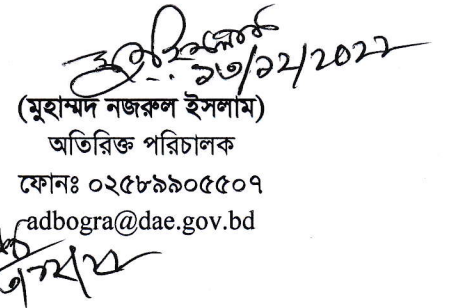 ১৩/১২/2022
(মুহাম্মদ নজরুল ইসলাম)
অতিরিক্ত পরিচালক
ফোনঃ ০২৫৮৯৯০৫৫০৭
adbogra@dae.gov.bd